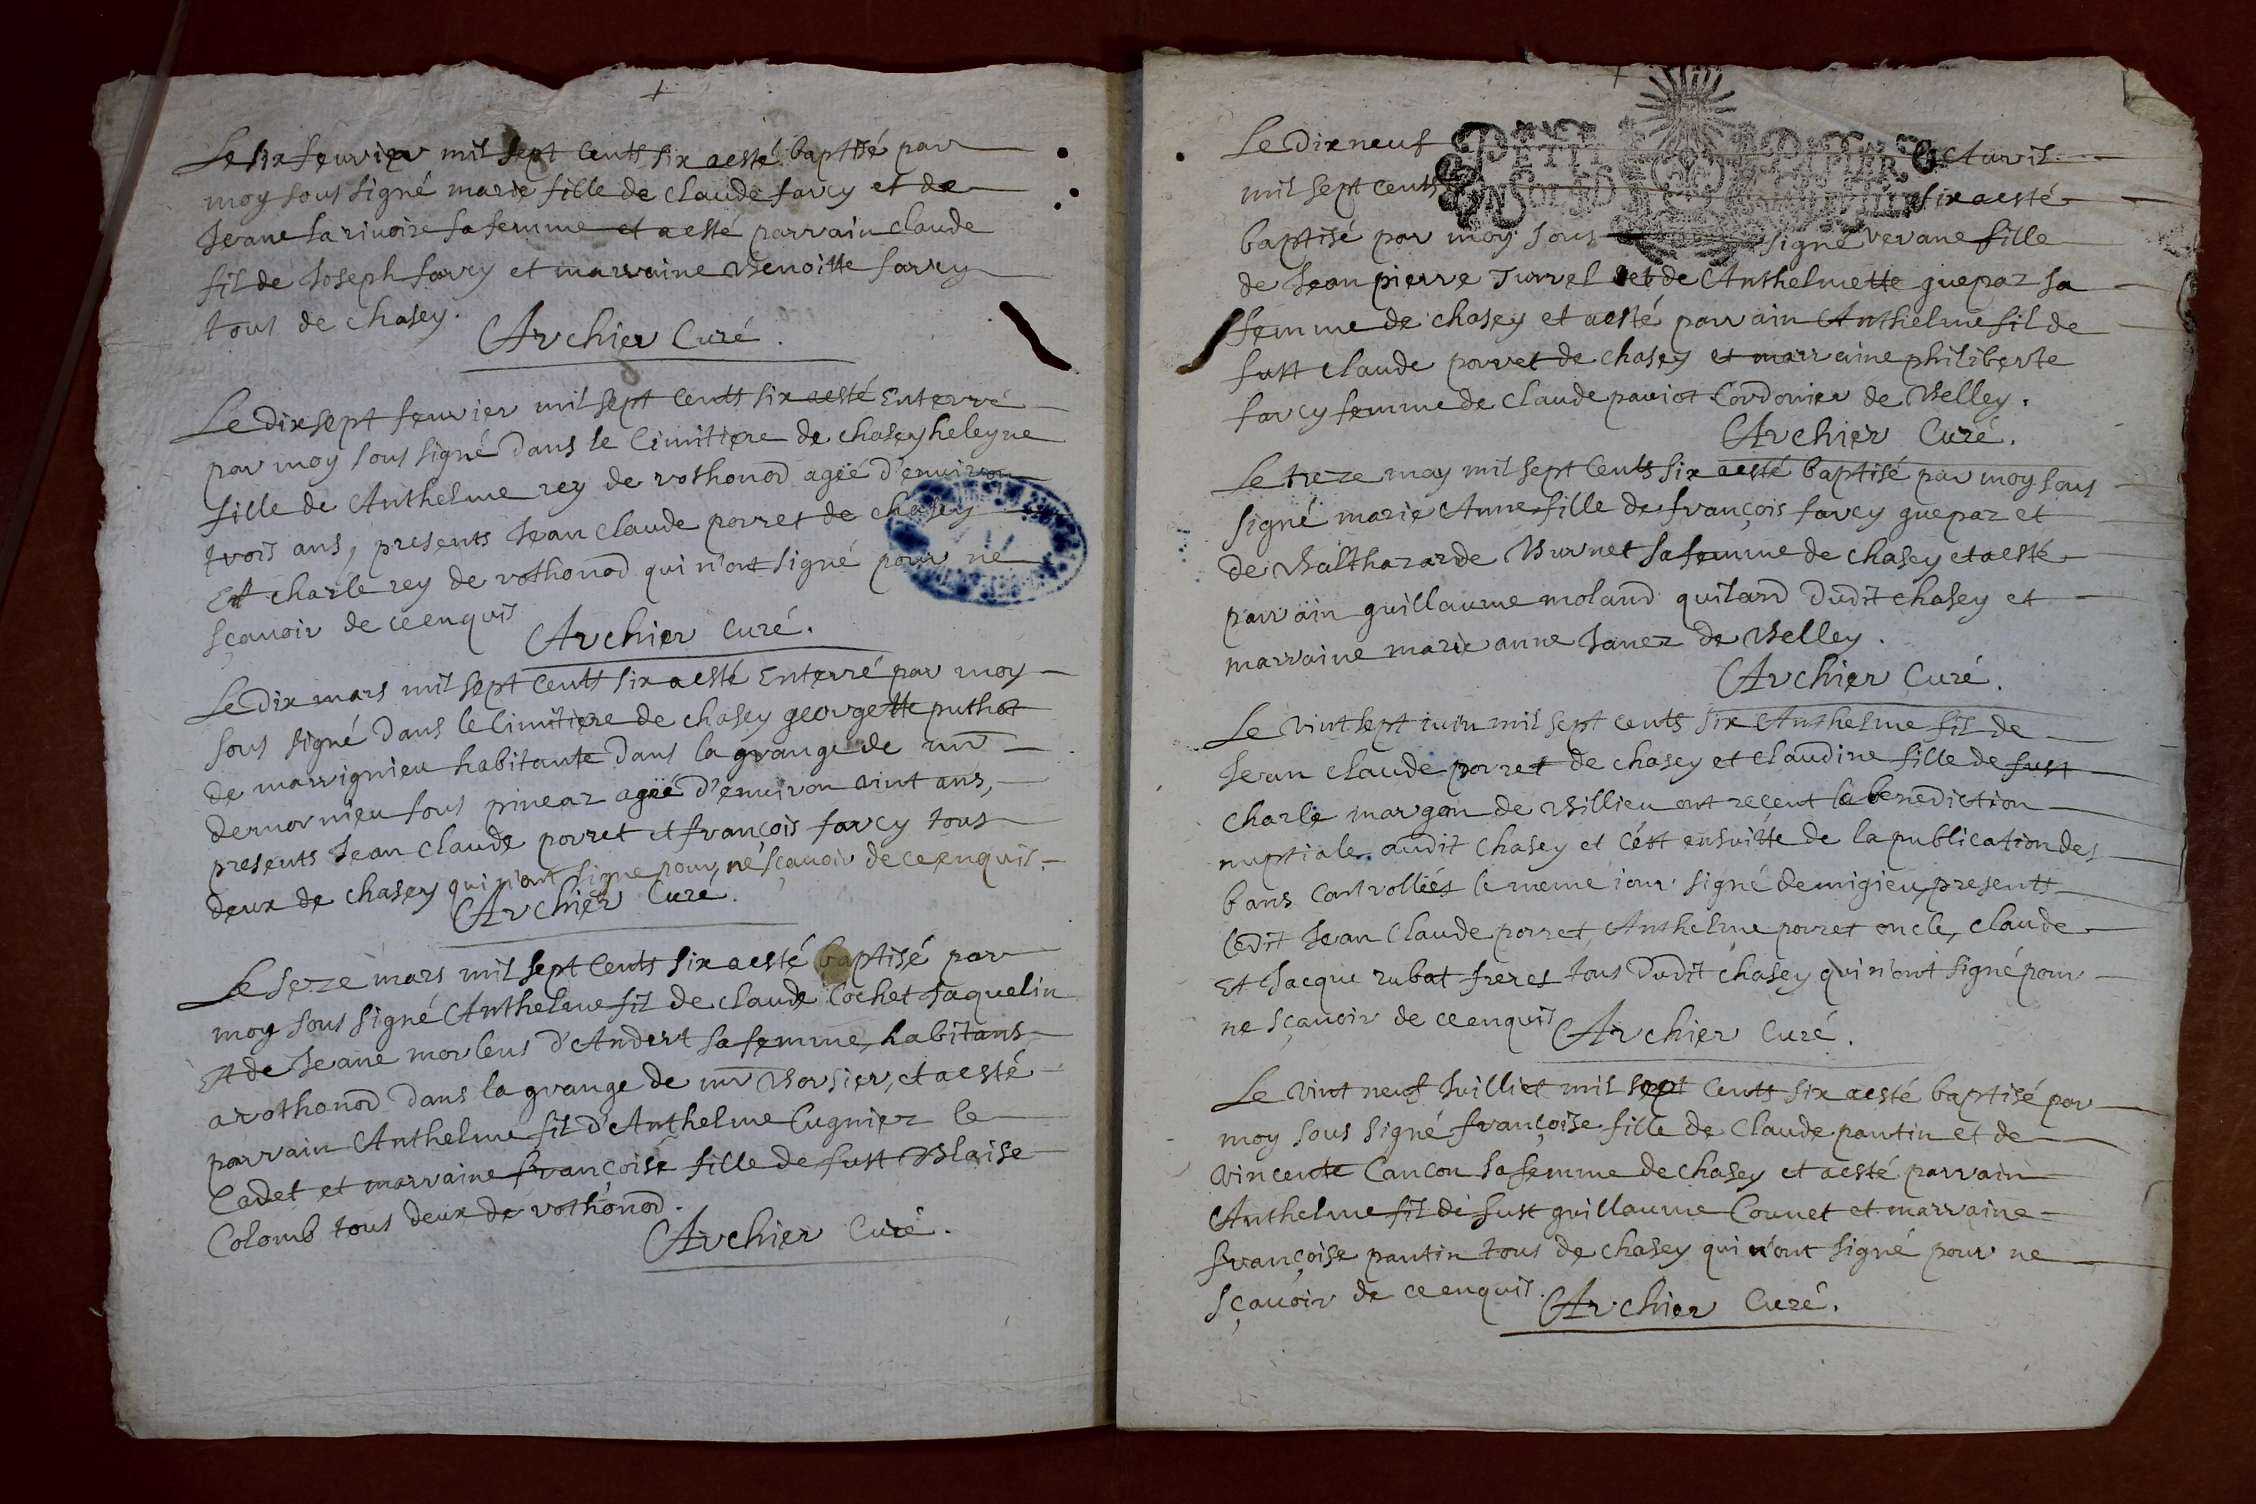 Le six feuvrier mil sept cents six a esté baptisé par
moy sous signé marie fille de claude farcy et de
Jeane larivoire sa femme et a esté parrain claude
fil de Joseph farcy et marraine Benoitte farcy
tous de chasey.
Archier Curé.
Le dix sept feuvrier mil sept cents six a esté Enterré
par moy sous signé dans le Cimitiere de chasey heleyne
fille de Anthelme rey de rothonod ageé d'environ
trois ans, presents Jean Claude porret de chasey
Et charle rey de rothonod qui n'ont signé pour ne
sçavoir de ce enquis
Archier Curé.
Le dix mars mil sept cents six a esté Enterré par moy
sous signé dans le Cimitiere de chasey georgette puthot
de marrignieu habitante dans la grange de mr
demornieu sous pinear ageé d'environ vint ans,
presents Jean Claude porret et françois farcy tous
deux de chasey qui n'ont signe pour ne sçavoir de ce enquis.
Archier Curé.
Le seze mars mil sept cents six a esté baptisé par
moy sous signé Anthelme fil de claude Cochet Jaquelin
Et de Jeane morlens d'Andert sa femme, habitans
a rothonod dans la grange de mr Borsier, et a esté
parrain Anthelme fil d'Anthelme Cugnier le
Cadet et marraine françoise fille de fust Blaise
Colomb tous deux de rothonod.
Archier Curé.
Le dix neuf Avril
PETIT PAPIER
mil sept cents six a esté
baptisé par moy sous signé verane fille
de Jean pierre Turrel et de Anthelmette guepaz sa
femme de chasey et a esté parrain Anthelme fil de
fust claude porret de chasey et marraine philiberte
farcy femme de claude paviot Cordonier de Belley.
Archier Curé.
Le treze may mil sept cents six a esté baptisé par moy sous
signé marie Anne fille de françois farcy guepaz et
de Balthazarde Burnet sa femme de chasey et a esté
parrain guillaume moland quiland dudit chasey et
marraine marie anne Janez de Belley.
Archier Curé.
Le vint sept iuin mil sept cents six Anthelme fil de
Jean claude porret de chasey et claudine fille de fust
charle margon de Billieu ont receut la benediction
nuptiale audit chasey et c'est ensuitte de la publication des
bans Controlliés le meme iour signé demigieu, presents
ledit Jean Claude porret, Anthelme porret oncle, claude
Et Jacque rubat freres tous dudit chasey qui n'ont signé pour
ne sçavoir de ce enquis
Archier Curé.
Le vint neuf Juilliet mil sept cents six a esté baptisé par
moy sous signé françoise fille de Claude pantin et de
Vincente Cancon sa femme de chasey et a esté parrain
Anthelme fil de fust guillaume Counet et marraine
françoise pantin tous de chasey qui n'ont signé pour ne
sçavoir de ce enquis.
Archier Curé.